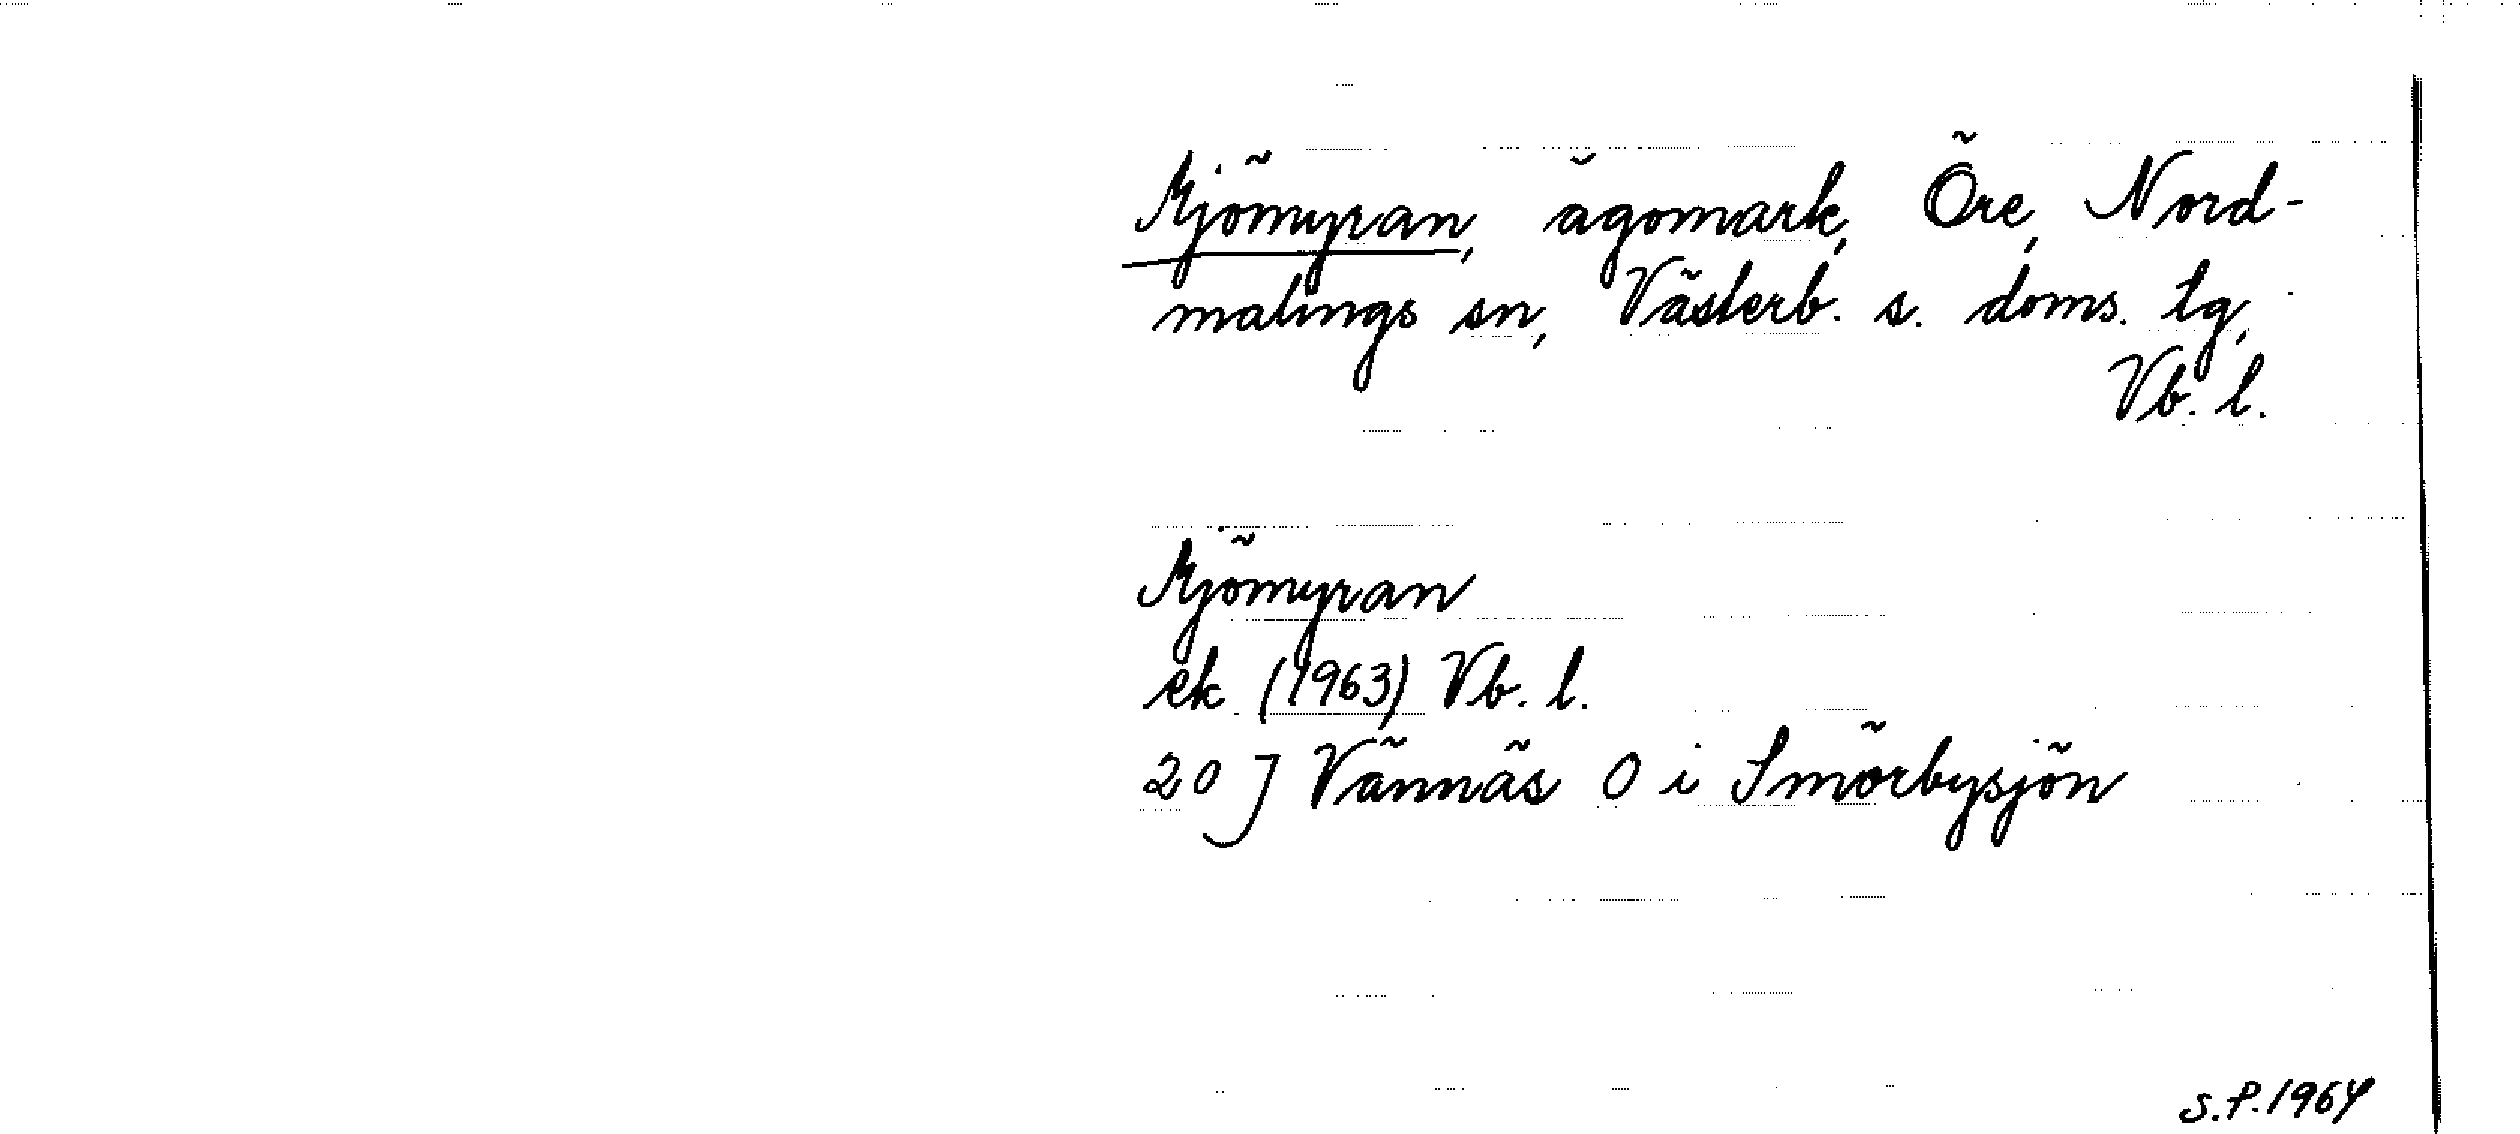 Mjömyran, ägomark, Öre, Nord-
malings sn, Västerb. s. doms. tg,
Vb. l.
Mjömyran
ek (1963) Vb. l.
20 J Vännäs 0 i Smörbysjön
S.P. 1964